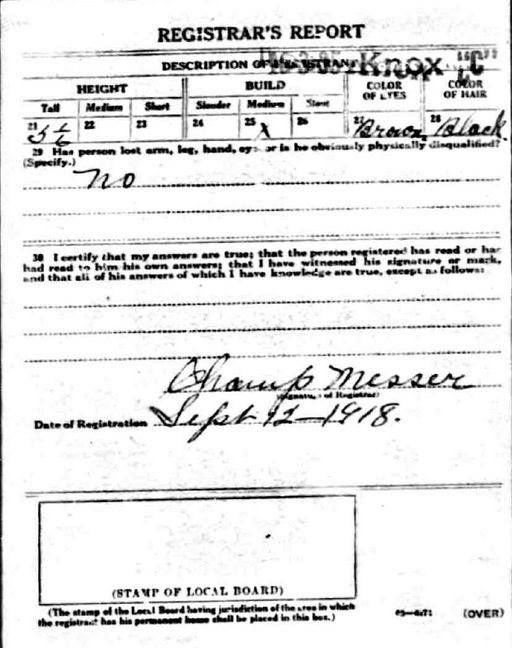 REGISTRAR'S REPORT
DESCRIPTION OF REGISTRANT
16-3-35 Knox "C"
HEIGHT BUILD COLOR OF EYES COLOR OF HAIR
Tall Medium Short Slender Medium Stout
21 22 23 24 25 26 27 28
X Brown Black
29 Has person lost arm, leg, hand, eye, or is he obviously physically disqualified?
(Specify.)
No
30 I certify that my answers are true; that the person registered has read or has
had read to him his own answers; that I have witnessed his signature or mark,
and that all of his answers of which I have knowledge are true, except as follows:
Champ Messer
(Signature of Registrar)
Date of Registration Sept 12-1918.
(STAMP OF LOCAL BOARD)
(The stamp of the Local Board having jurisdiction of the area in which
the registrant has his permanent home shall be placed in this box.)
(OVER)